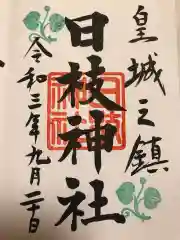 皇城之鎮
日枝神社
令和三年九月二十日